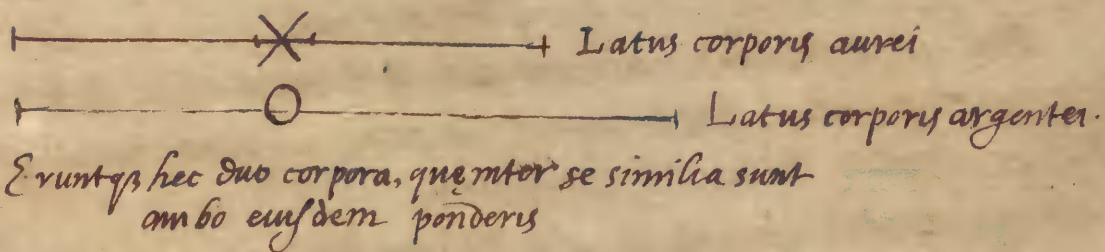 Latus corporis aurei
Latus corporis argentei.
Eruntqȝ hec duo corpora, quę inter se similia sunt
ambo eiusdem ponderis